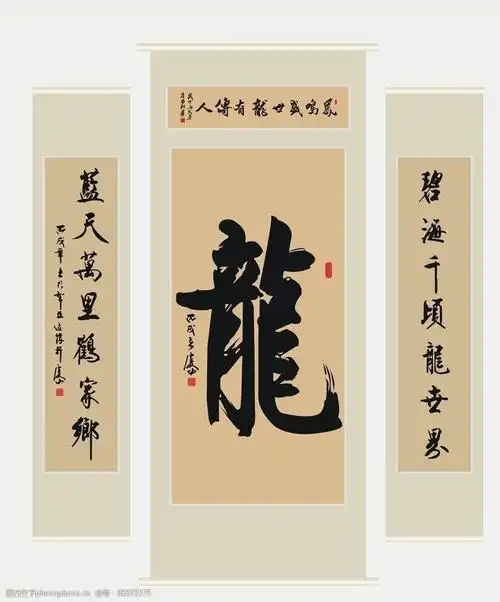 鳳鳴盛世龍有傳人
碧海千頃龍世界
龍
丙戌
藍天萬里鶴家鄉
丙戌年